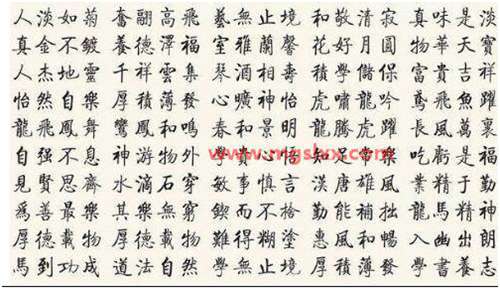 人淡如菊 奮翮高飛 藝無止境 和敬清寂 真味是淡
真金不鍍 養德澤福 室雅蘭馨 花好月圓 物華天寶
人杰地靈 千祥雲集 琴酒相壽 積學儲 富貴吉祥
怡然自樂 厚積薄發 曠神怡 虎嘯龍吟 鳶飛魚躍
龍飛鳳舞 鸞鳳和鳴 春和景明 龍騰虎躍 長風萬裏
自強不息 神游物外 心 知足常樂 吃虧是福
見賢思齊 水滴石穿 敏事慎言 漢唐雄風 業精于勤
爲善最樂 其樂無窮 鍥而不捨 勤能補拙 龍馬精神
厚德載物 厚德載物 難得糊塗 惠風和暢 入幽出朗
馬到功成 道法自然 學無止境 厚積薄發 學書養志